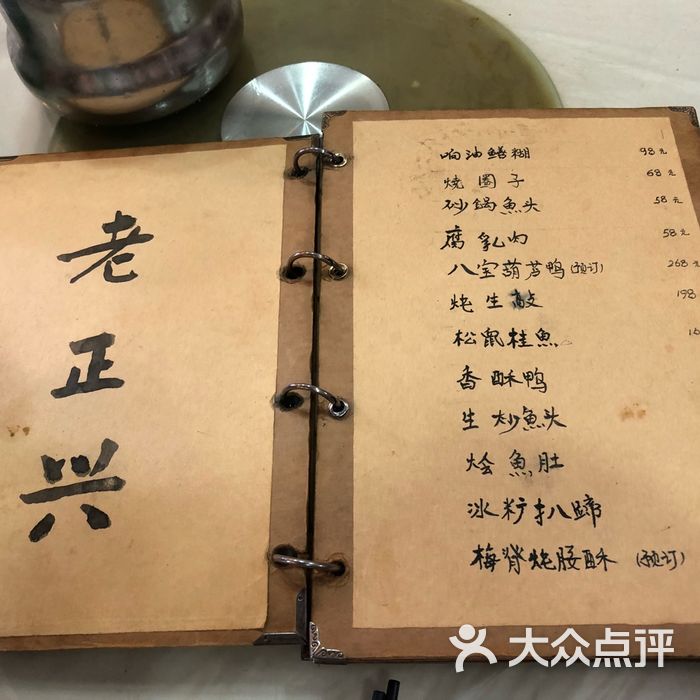 老
正
兴
响油鳝糊 98元
烧圈子 68元
砂锅魚头 58元
腐乳肉 58元
八宝葫芦鸭(预订) 268元
炖生敲 198
松鼠桂魚
香酥鸭
生炒魚头
烩魚肚
冰籿扒蹄
梅脊炖腰酥(预订)
大众点评